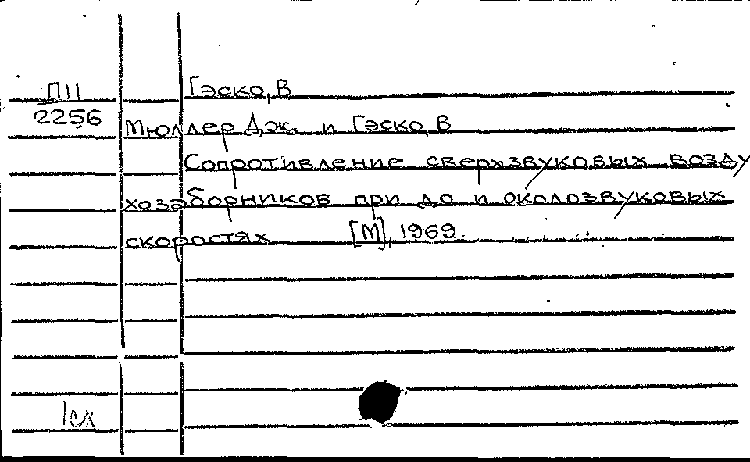 П11
2256
Гэско, В
Мюллер Дж. и Гэско В
Сопротивление сверхзвуковых возду
хозаборников при до и околозвуковых
скоростях [М], 1969.